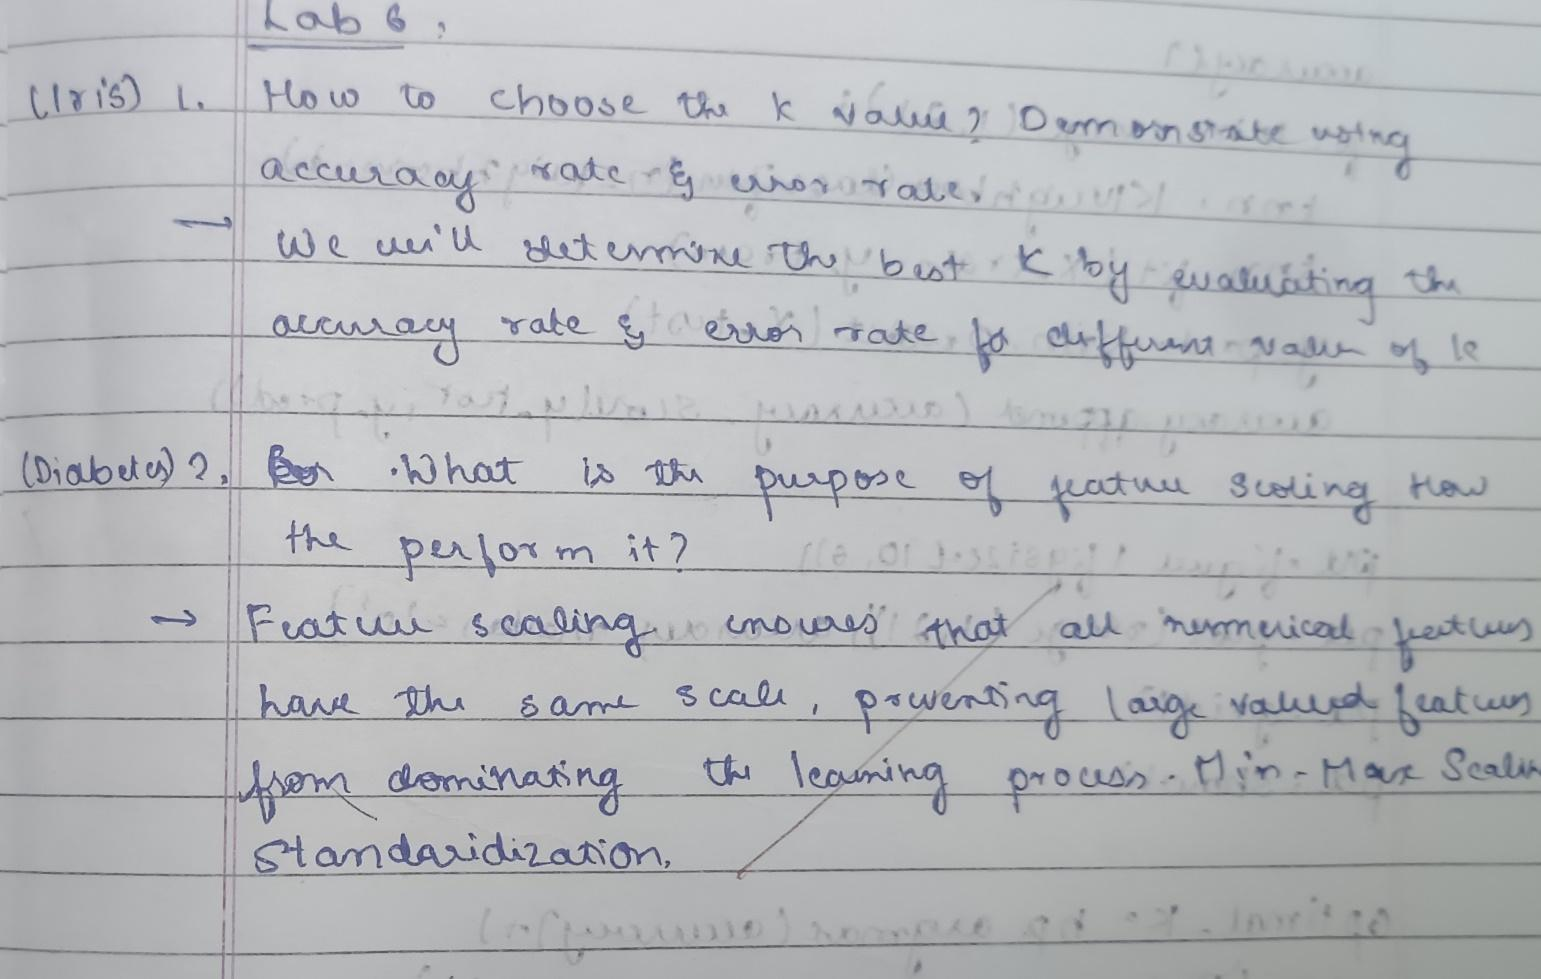 Lab 6,
(Iris) 1. How to choose the k value? Demonstrate using
accuracy rate & error rate.
→ We will determine the best K by evaluating the
accuracy rate & error rate for different value of k
(Diabetes) 2. What is the purpose of feature scaling How
the perform it?
→ Feature scaling ensures that all numerical features
have the same scale, preventing large valued features
from dominating the learning process. Min-Max Scalin
standaridization.